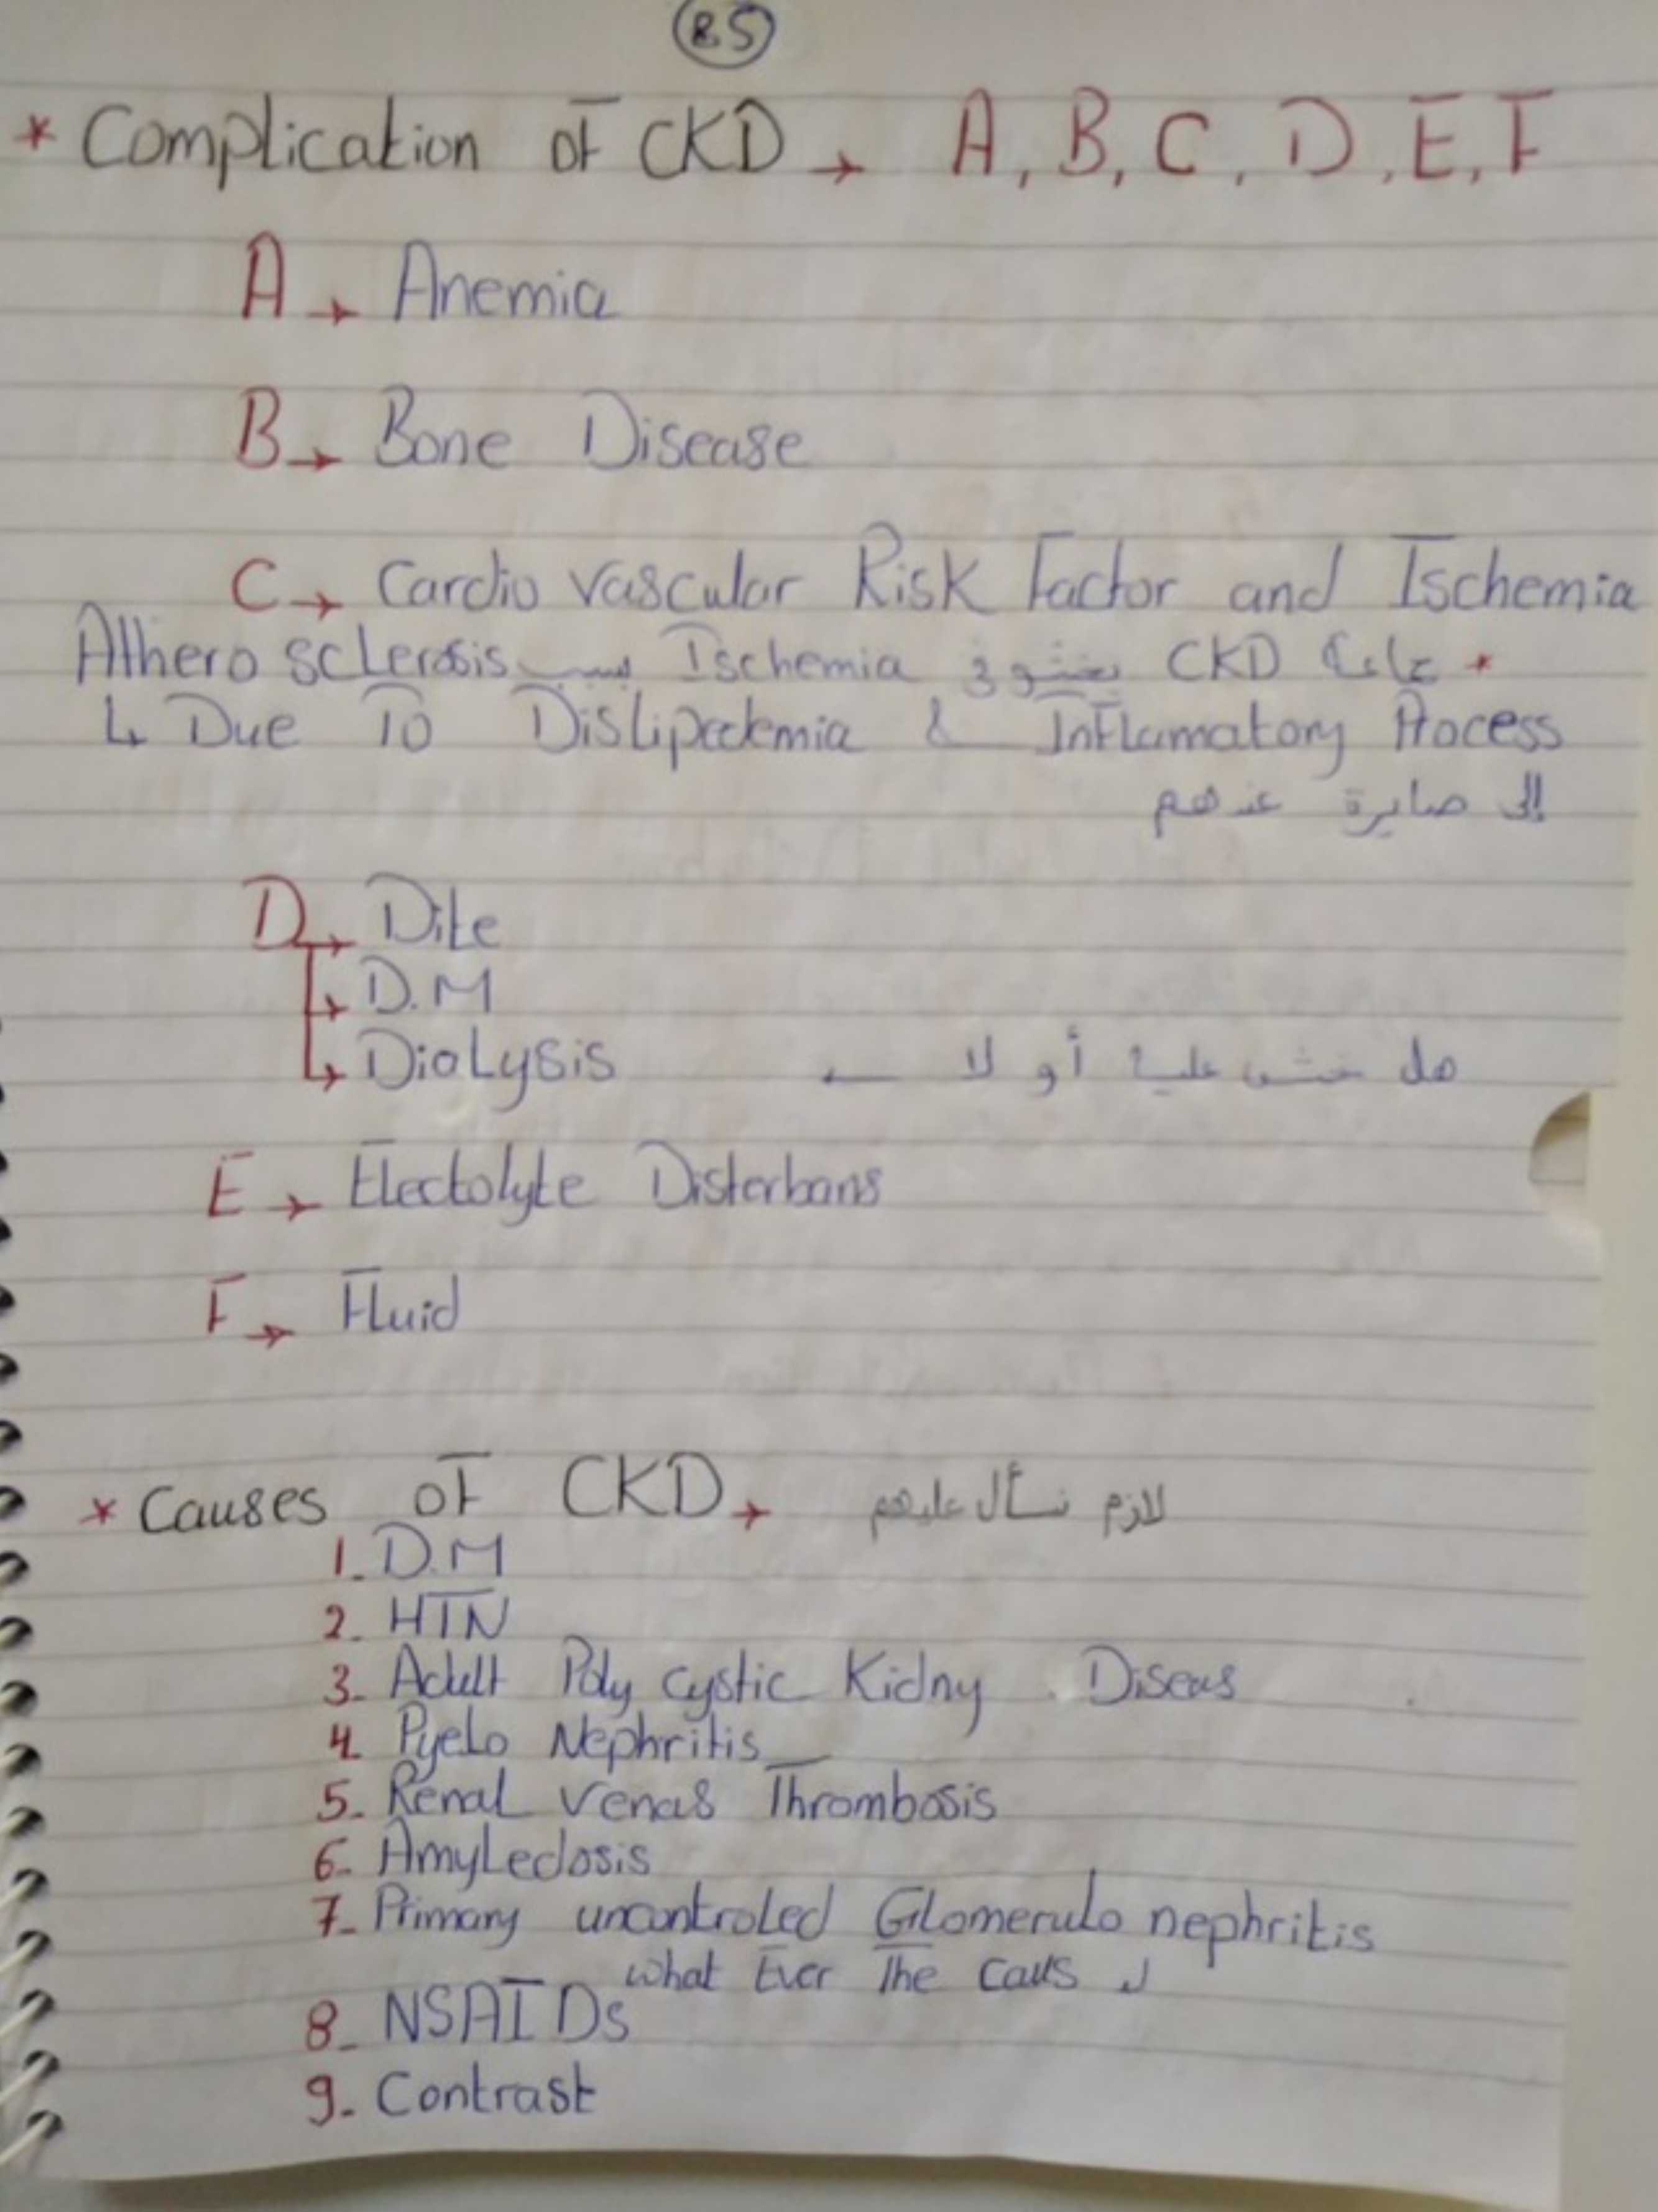 85
* Complication of CKD → A, B, C, D, E, F
A → Anemia
B → Bone Disease
C → Cardio vascular Risk Factor and Ischemia
* جماعة CKD يخشو في Ischemia بسبب Athero sclerosis
↳ Due To Dislipedemia & Inflamatory Process
إلى صايرة عندهم
D → Dite
→ D.M
→ Dialysis ← هل خش علية أو لا
E → Electolyte Disterbans
F → Fluid
* Causes of CKD → لازم نسأل عليهم
1. D.M
2. HTN
3. Adult Poly cystic Kidny Diseas
4. Pyelo Nephritis
5. Renal Venas Thrombosis
6. Amyledosis
7. Primary uncontroled Glomerulo nephritis
what Ever The Caus
8. NSAIDs
9. Contrast